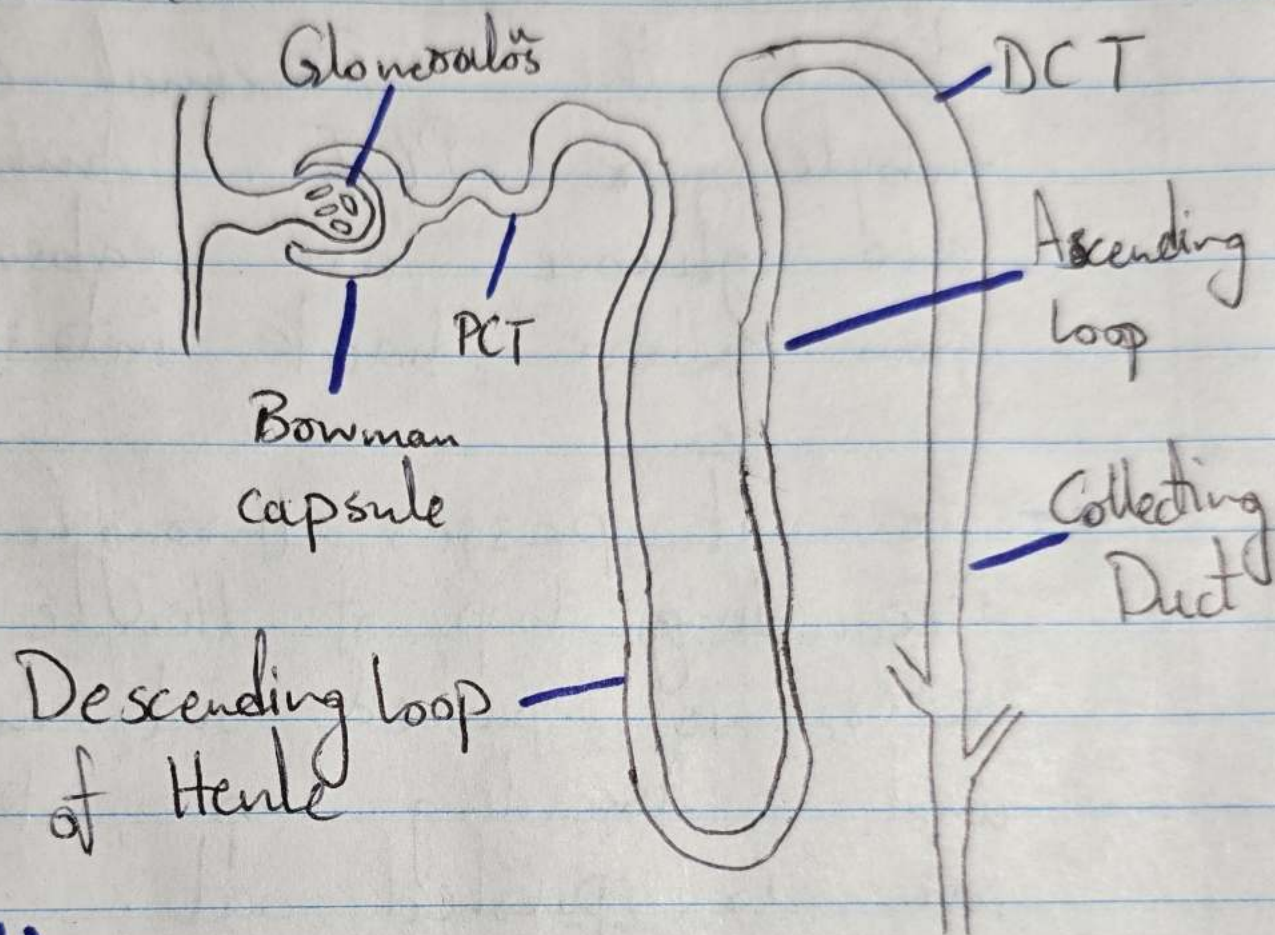 Glomerulus
DCT
Ascending
loop
PCT
Bowman
capsule
Collecting
Duct
Descending loop
of Henle